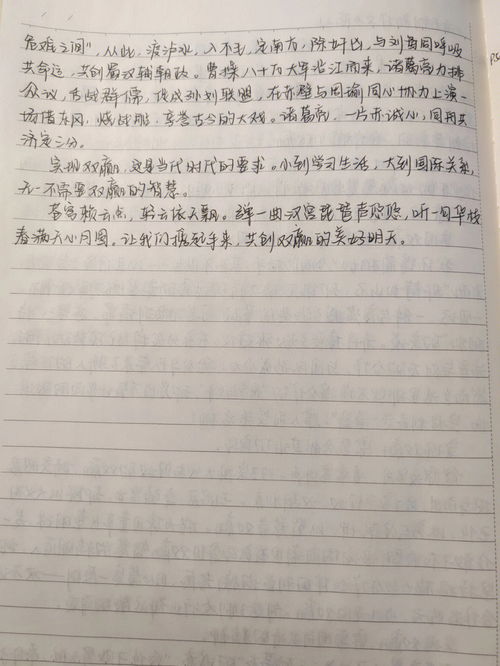 危难之间"，从此，渡泸水，入不毛，定南方，除奸凶，与刘蜀同呼吸
共命运，共创蜀汉新朝政。曹操八十万大军沿江而来，诸葛亮力排
众议，舌战群儒，促成孙刘联盟，在赤壁与周瑜同心协力上演一
场借东风，烧战船，享誉古今的大戏。诸葛亮，一片赤诚心，同舟共
济定三分。
实现双赢，这是当代时代的要求。小到学习生活，大到国际关系，
无一不需要双赢的智慧。
云点，轻云依不飘。弹一曲汉宫琵琶声，听一回华枝
春满天心月圆。让我们携起手来，共创双赢的美好明天。